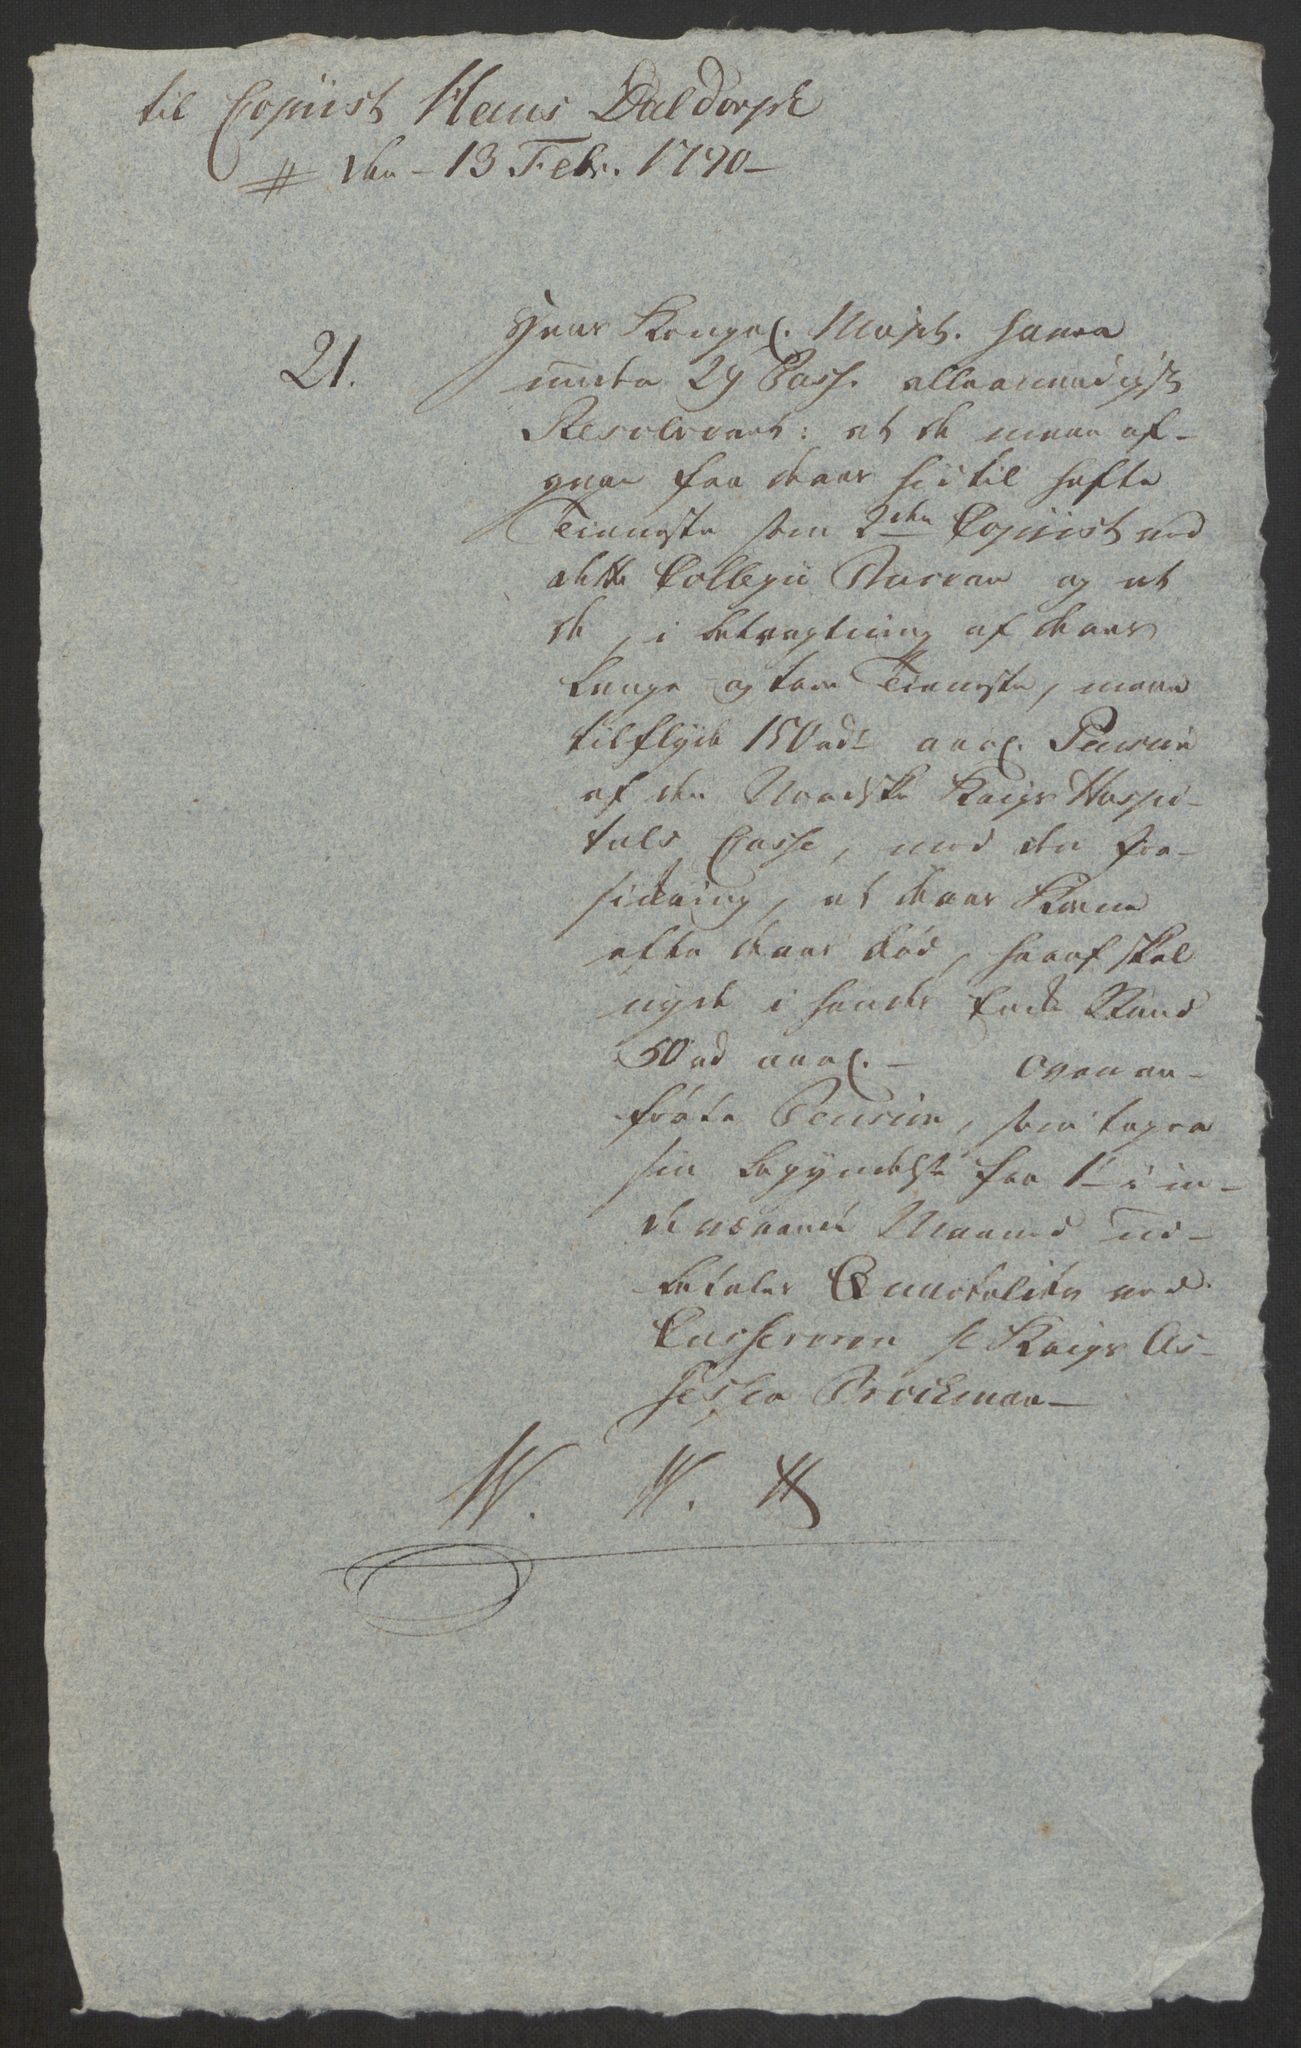 til Copiist Hans Daldorph
den 13 Febr. 1790
21. Hans Kongel. Majst. haver
under 29 Pass. allernaadigst
Resolveret: at de maae af-
gaae fra deres hidtil hafte
Tienneste som 2den Copiist ved
dette Collegii Bureau og at
de, i betragtning af deres
lange og troe Tienneste, maae
tilflyde 150 rd aarl. Pension
af den Norske Krigs Hospi-
tals Casse, med den for-
sikring, at deres Kone
efter deres død, heraf skal
nyde i hendes Enke Stand
50 rd aarl. – Ovenan-
førte Pension, som tager
sin begyndelse fra 1te i in-
deværende Maaned ud-
betales Qvartaliter ved
Cassereren hr Krigs As-
sessor Brockman
W. W. H